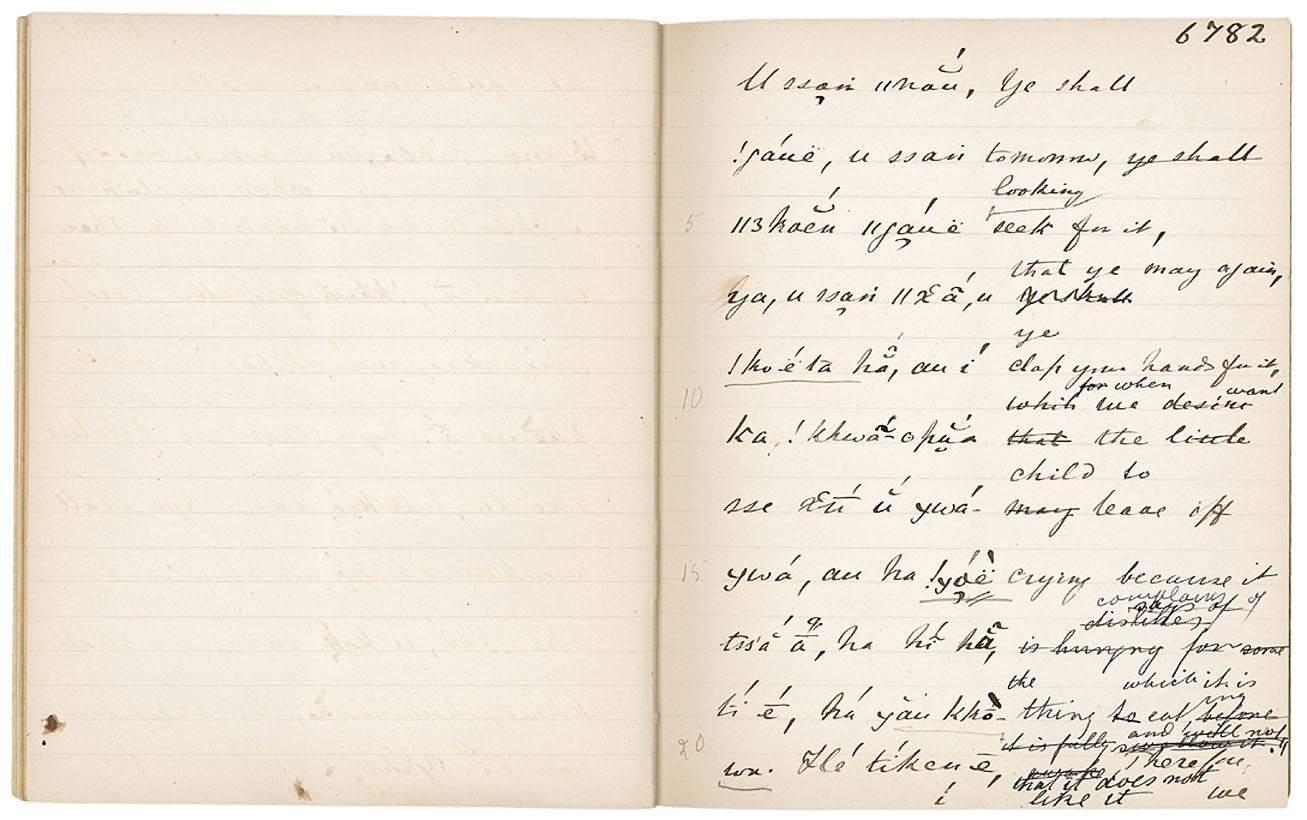 6782
U ssan̄ ǁnău, Ye shall
!gáuë, u ssan̄ tomorrow, ye shall
looking
5 ǁ3koĕn ǁgáuë seek for it,
that ye may again,
ya, u ssan̄ ǁx̄ā́, u ye shall
ye
!ko-é ta hā̂, au í clap your hands for it,
for when want
10 which we desire
ka, !khwā́-opŭa that the little
child to
sse x̄ū́ ŭ ywá- may leave off
15 ywá, au ha !yóë crying because it
complains of
says of
dislikes
tssā́ ā́, ha hĭ hā̂, is hungry for some
the which it is
tí é, há yāu khō- thing to eat, before
ing
and will not
it is fully swallow it."
20 wa. Hé tíken ē, Therefore,
that it does not
í like it we